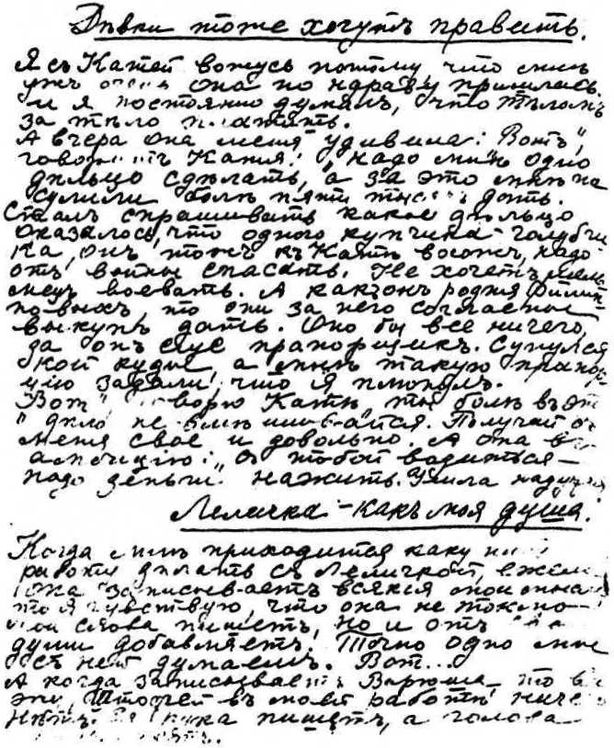 Дѣвки тоже хочутъ править.
Я съ Катей вожусь потому что мнѣ
ужъ она по ндраву пришлась.
и я постоянно думалъ, что тѣломъ
за тѣло платятъ.
А вчера она меня удивила: „Вотъ",
Катя: „надо мнѣ одно
дѣльцо сдѣлать, а за это мнѣ на
сулили болѣ пяти дать.
Сталъ спрашивать какое дѣльцо
оказалось, что одного купчика-голубчи
ка, онъ тожъ къ Катѣ вхожъ, надо
отъ войны спасать. Не хочетъ
воевать. А какъ онъ родня Филип
повыхъ, то они за него согласны
выкупъ дать. Оно бы все ничего,
да онъ еще прапорщикъ. Сунулся
кой куды, а мнѣ такую
цію задали, что я
Вотъ" говорю Катѣ, ты болѣ въ эт
дѣло не Получай отъ
меня свое и довольно. А она въ
амбицію: „съ тобой водиться —
надо деньги нажить. Ушла
Леличка - какъ моя душа.
Когда мнѣ приходится каку
работу дѣлать съ Леличкой, ежели
она записываетъ всякія мои
то я чувствую, что она не токмо
мои слова пишетъ, но и отъ
души добавляетъ. Точно одно мы
съ ней думаемъ. Вотъ...
А когда записываетъ Варюша, то въ
эту въ моей работѣ ниче
нѣтъ. рука пишетъ, а голова